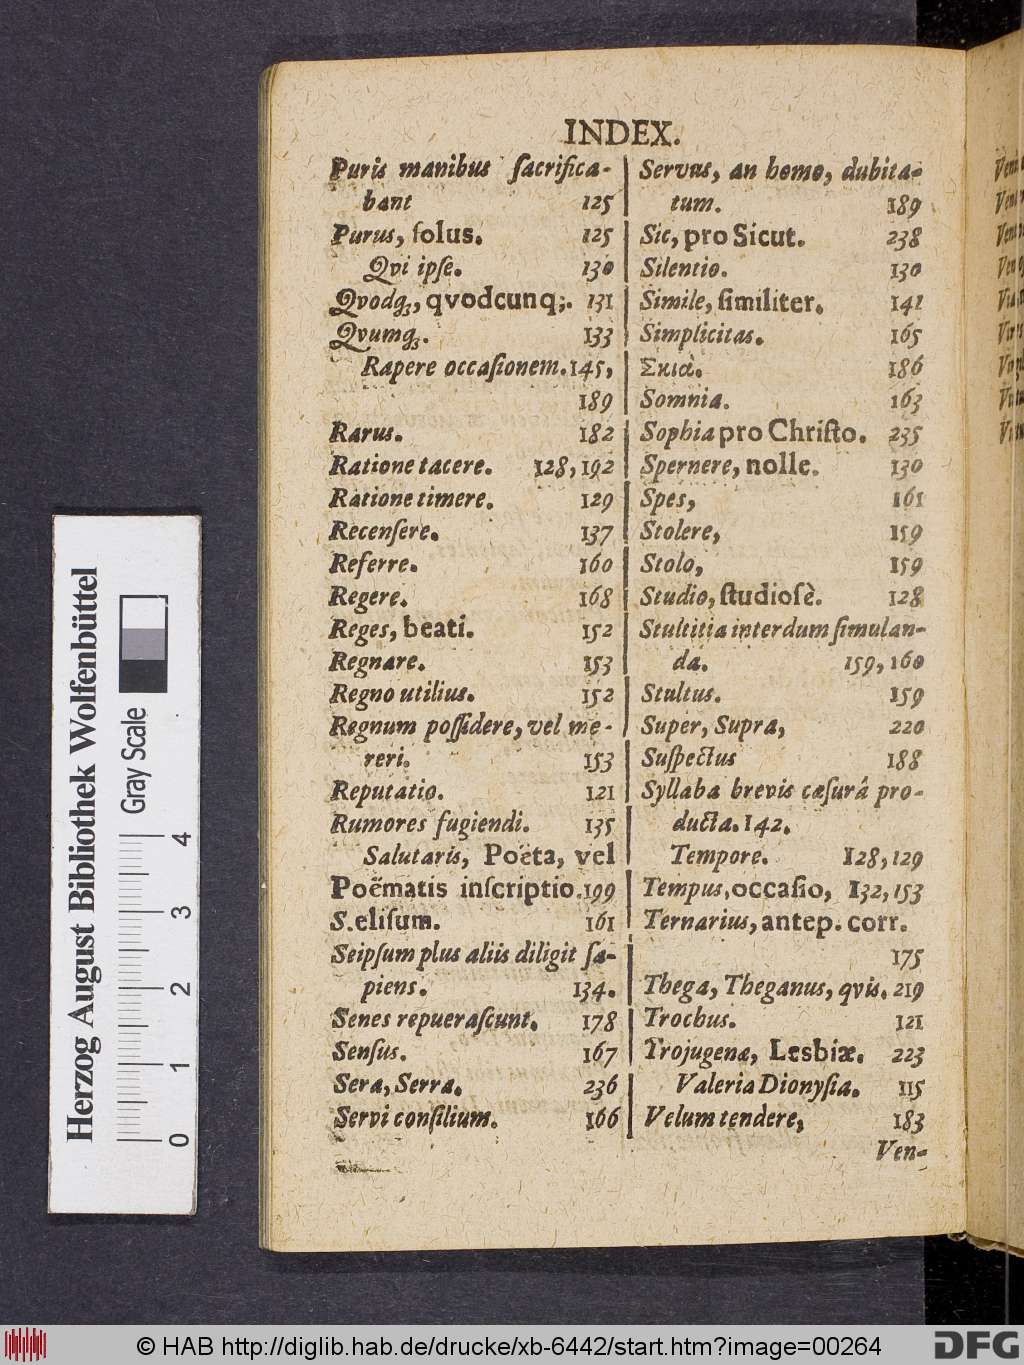 INDEX.
Puris manibus ſacrifica-
bant 125
Purus, ſolus. 125
Qvi ipſe. 130
Qvodq;, qvodcunq;. 131
Qvumq;. 133
Rapere occaſionem. 145,
189
Rarus. 182
Ratione tacere. 128, 192
Ratione timere. 129
Recenſere. 137
Referre. 160
Regere. 168
Reges, beati. 152
Regnare. 153
Regno utilius. 152
Regnum poſſidere, vel me-
reri. 153
Reputatio. 121
Rumores fugiendi. 135
Salutaris, Poëta, vel
Poëmatis inſcriptio. 199
S. eliſum. 161
Seipſum plus aliis diligit ſa-
piens. 134.
Senes repueraſcunt. 178
Senſus. 167
Sera, Serra. 236
Servi conſilium. 166
Servus, an homo, dubita-
tum. 189
Sic, pro Sicut. 238
Silentio. 130
Simile, ſimiliter. 141
Simplicitas. 165
Σκιὰ. 186
Somnia. 163
Sophia pro Chriſto. 235
Spernere, nolle. 130
Spes, 161
Stolere, 159
Stolo, 159
Studio, ſtudioſè. 128
Stultitia interdum ſimulan-
da. 159, 160
Stultus. 159
Super, Supra, 220
Suſpectus 188
Syllaba brevis cæſurâ pro-
ducta. 142.
Tempore. 128, 129
Tempus, occaſio, 132, 153
Ternarius, antep. corr.
175
Thega, Theganus, qvis. 219
Trochus. 121
Trojugenæ, Lesbiæ. 223
Valeria Dionyſia. 115
Velum tendere, 183
Ven-
Herzog August Bibliothek Wolfenbüttel
Gray Scale
0 1 2 3 4
© HAB http://diglib.hab.de/drucke/xb-6442/start.htm?image=00264
DFG